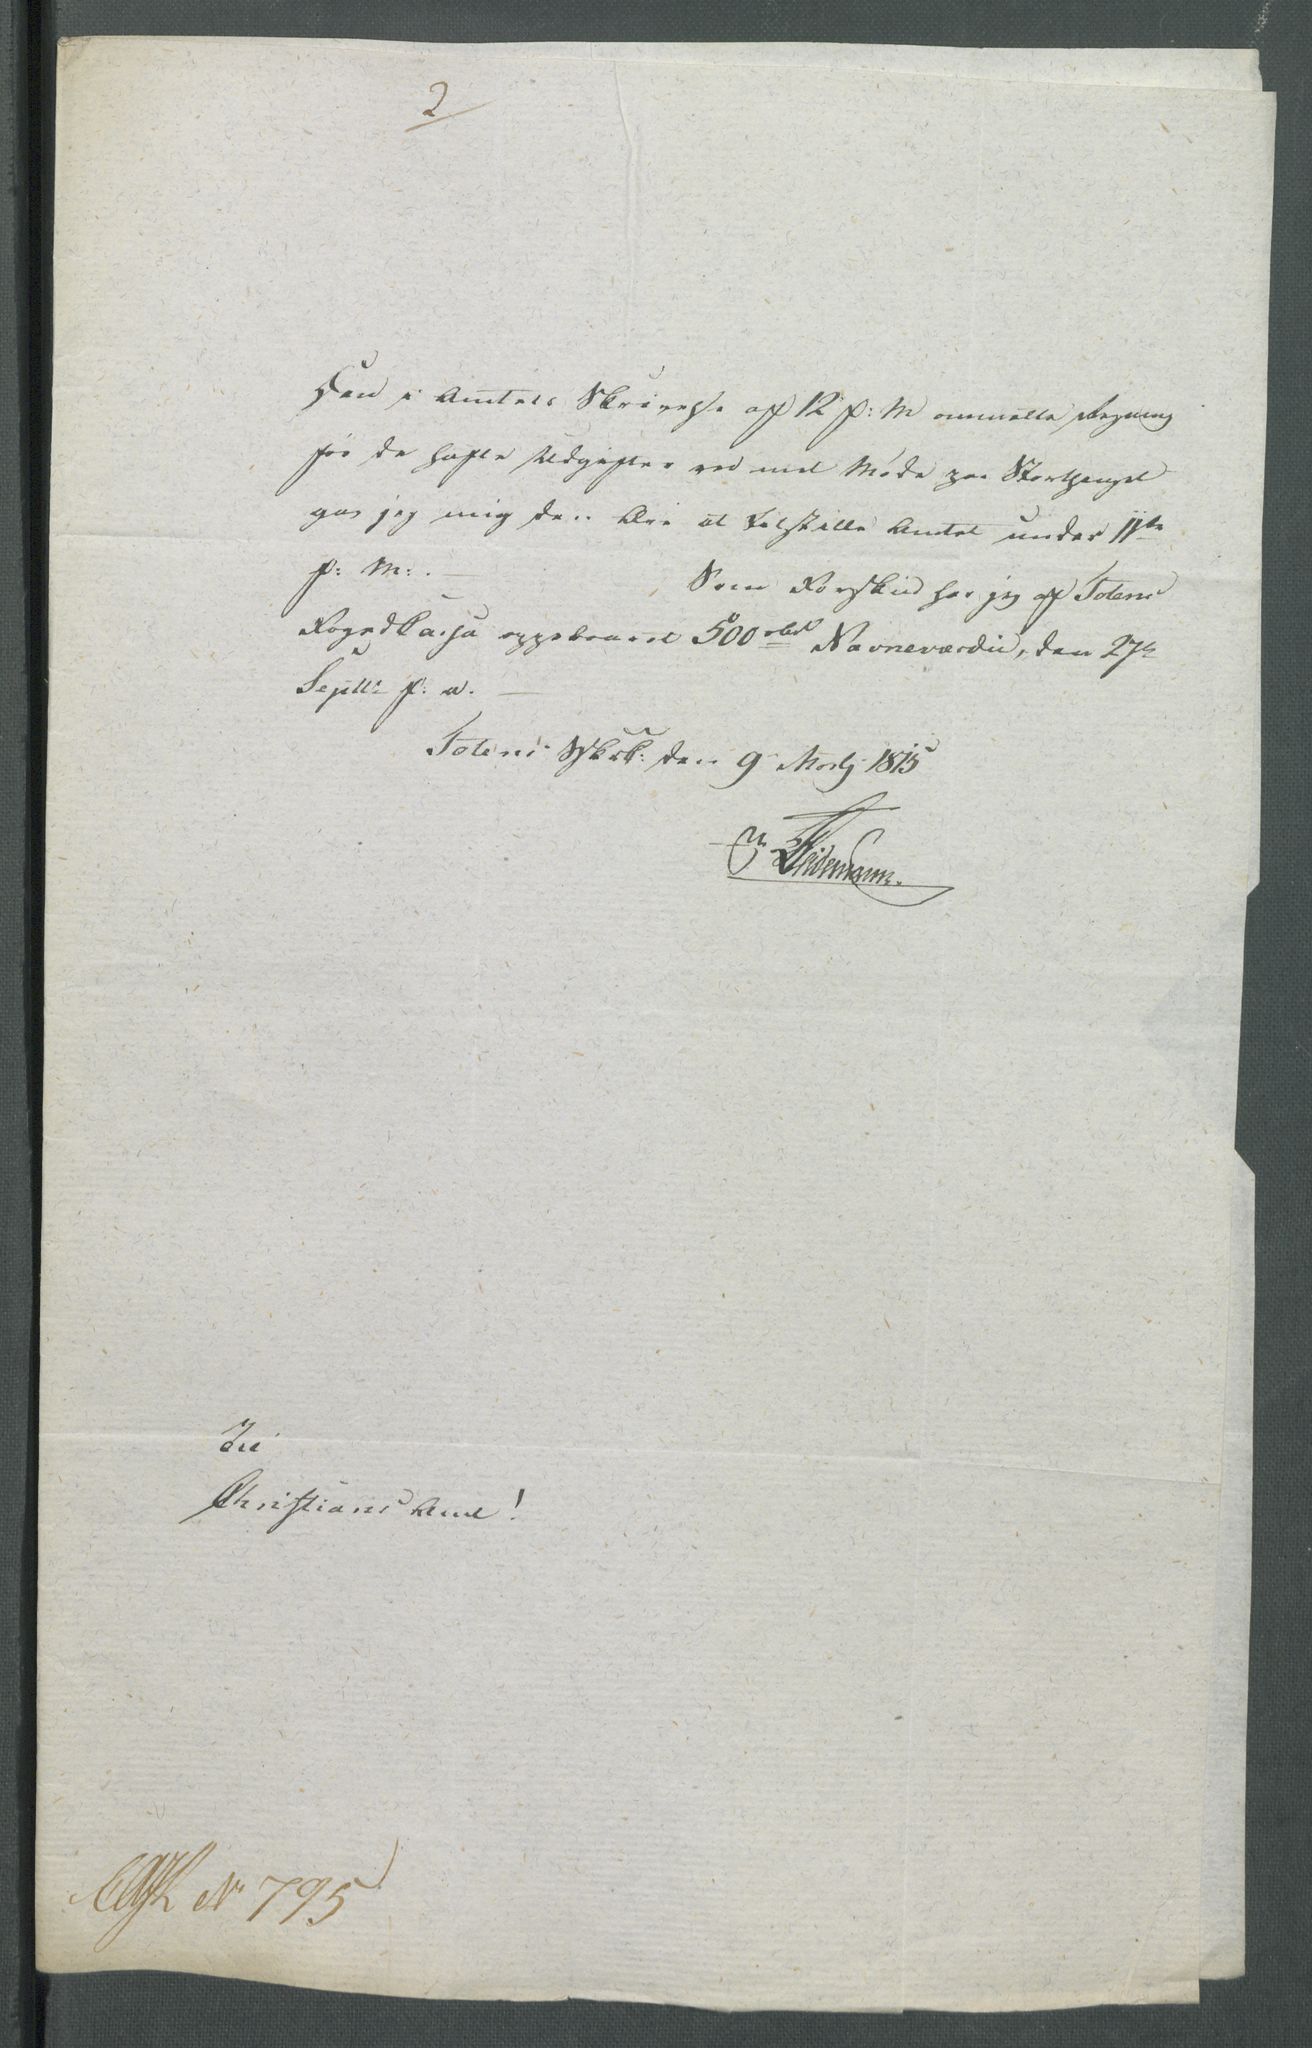 2
Den i Amtets Skrivelse af 12 f: M ommelte Regning
for de hafte Udgifter ved mit Møde paa Storthinget
gav jeg mig den Ære at tilstille Amtet under 11te
f: M: . —
Som Forskud har jeg af Totens
Fogedkassa oppebaaret 500 rbd Navneværdie, den 27de
Septbr f: a. —
Totens Skrk: den 9 Marty 1815
Weidemann.
Til
Christians Amt!
No 795